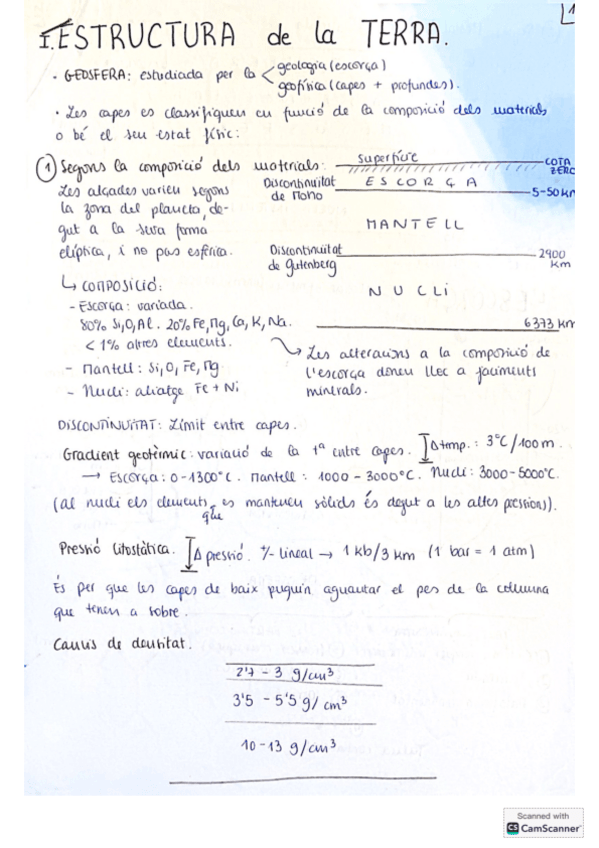 1
I. ESTRUCTURA de la TERRA.
· GEOSFERA: estudiada per la geologia (escorça)
geofísica (capes + profundes).
· Les capes es classifiquen en funció de la composició dels materials
o bé el seu estat físic:
1 Segons la composició dels materials:
Les alçades varien segons
la zona del planeta, de-
gut a la seva forma
el·líptica, i no pas esfèrica.
Superfície COTA ZERO
ESCORÇA
Discontinuïtat de Moho 5-50 km
MANTELL
Discontinuitat de Gutenberg 2900 km
NUCLI
6373 km
↳ COMPOSICIÓ:
- Escorça: variada.
80% Si, O, Al. 20% Fe, Mg, Ca, K, Na.
< 1% altres elements.
- Mantell: Si, O, Fe, Mg
- Nucli: aliatge Fe + Ni
Les alteracions a la composició de
l'escorça donen lloc a jaciments
minerals.
DISCONTINUÏTAT: Límit entre capes.
Gradient geotèrmic: variació de la Tª entre capes. Δtemp.: 3°C/100m.
→ Escorça: 0-1300°C. Mantell: 1000 - 3000°C. Nucli: 3000-5000°C.
(al nucli els elements es mantenen sòlids és degut a les altes pressions).
que
Pressió litostàtica. Δ pressió. +/- lineal → 1 kb/3 km (1 bar = 1 atm)
És per que les capes de baix puguin aguantar el pes de la columna
que tenen a sobre.
Canvis de densitat.
2'7 - 3 g/cm³
3'5 - 5'5 g/cm³
10-13 g/cm³
Scanned with
CS CamScanner